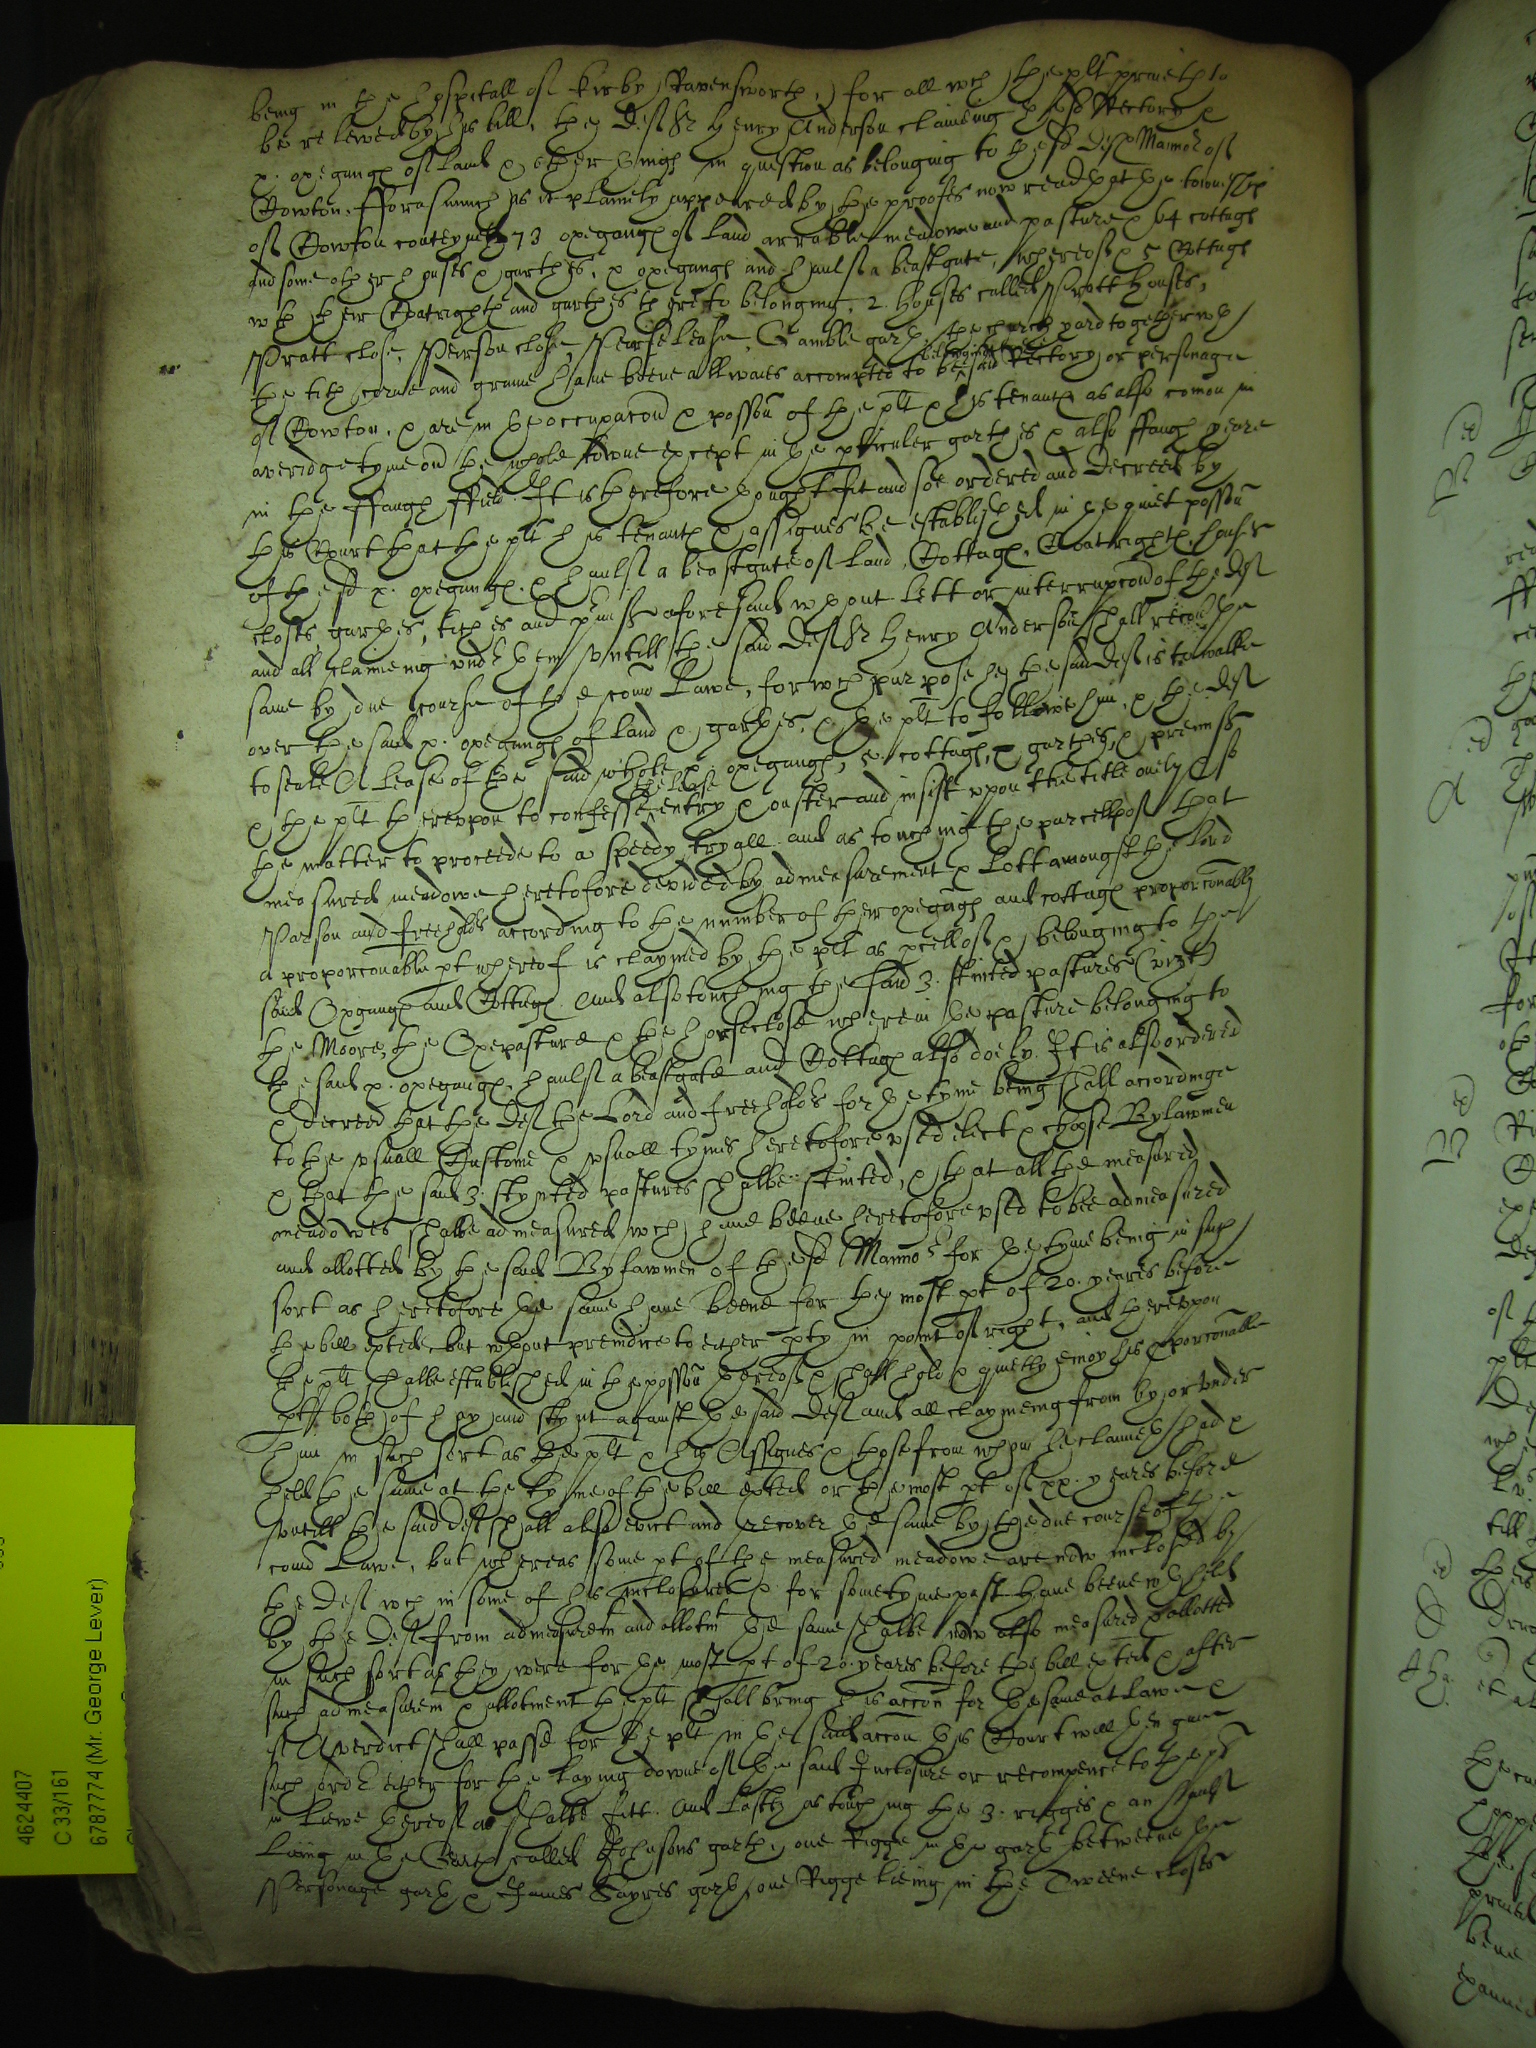 being in the hospitall of Kirby Ravensworth, for all wch the plt prayeth to
be relewed by his bill, they deft Sr Henry Anderson claimeing the sd Rectory &
x. oxegangs of land & other things in question as belonging to the sd deft Mannor of
Cowton. fforasmuch as it plainely appeared by the proofes now read that the towneshipp
of Cowton conteyneth 73 oxegangs of land arrable meadowe and pasture & 64 cottages
and some other houses & garthes, x oxegangs and halfe a beastgate, whereof & 5 Cottages
wth their Coatrights and garthes thereto belonging, 2. houses called Pratt houses,
Pratt close, Peirson close, Pearse lease, Gamble garth, the church yard together wth
the tith corne and graine have beene allwaies accompted to be belonging to the said Rectory or personage
of Cowton, & are in the occupacon & possion of the plt & his tenants as also comon in
averidge tyme on the whole towne except in the pticuler garthes & also ffaugh yeare
in the ffaugh ffield. It is therefore thought fit and soe ordered and decreed by
this Court that the plt his tenants & assignes be established in the quiet possion
of the sd x. oxegangs & halfe a beastgate of land, Cottages, Coatrights, houses
closes garthes, tithes and pmisses aforesaid wthout lett or interrupcon of the deft
and all claimeing undr them untill the said deft Sr Henry Anderson shall recour the
same by due course of the comon Lawe, for wch purpose hee the said deft is to walke
over the said x. oxegangs of land & garthes, & the plt to followe him, & the deft
to seale A lease of the said whole x oxegangs, 5. cottages, & garthes, & premisses
& the plt thereupon to confesse the lease entry & ouster and insist upon the title onely & so
the matter to proceede to a speedy tryall and as touching the parcells of that
measured meadowe heretofore devided by admeasurement & Lott amongst the Lord
Parson and freeholdrs according to the number of their oxegangs and cottages proporconably
a proporconable pt whereof is claymed by the plt as pcell of & belonging to the
said Oxgangs and Cottages. And also touching the said 3. stinted pastures (vizt)
the Moore, the Oxepasture & the horseclose wherein the pasture belonging to
the said x. oxegangs, halfe a beastgate and Cottages also doe ly. It is also ordered
& decreed that the deft the Lord and freeholdrs for the tyme being shall accordinge
to the usuall Custome & usuall tymes heretofore used elect & choose Bylawmen
& that the said 3. stynted pastures shalbe stinted, & that all the measured
meadowes shalbe admeasured wch have beene heretofore used to bee admeasured
and allotted by the said Bylawmen of the sd Mannor for the tyme being in such
sort as heretofore the same have beene for the most pt of 20. yeares before
the bill exted but wthout preiudice to either pty in point of right, and thereupon
the plt shalbe established in the possion thereof & shall hold & quietly enioy his pporconable
pt both of hay and stynt against the said deft and all claymeing from by or under
him in such sort as the plt & his Assignes & those from whom he claimeth had &
held the same at the tyme of the bill exted or the most pt of xx. yeares before
untill the said deft shall also evict and recover the same by the due course of the
comon Lawe, but whereas some pt of the measured meadowe are now inclosed by
the deft wth in some of his inclosures & for sometyme past have beene wthheld
by the deft from admeasuremt and allotmt the same shalbe now also measured & allotted
in such sort as they were for the most pt of 20. yeares before the bill exted & after
such admeasuremt & allotment the plt shall bring his accon for the same at Lawe &
if A verdict shall passe for the plt in the said accon this Court will then give
such ordr either for the laying downe of the said Inclosure or recompence to the plt
in liewe thereof as shalbe fitt. And lastly as touching the 3. rigges & an halfe
lieing in the Garth called Johnsons garth, one Rigge in the garth betweene the
Personage garth & James Sayres garth, one Rigge lieing in the Tweene closes
4624407
C 33/161
6787774 (Mr. George Lever)